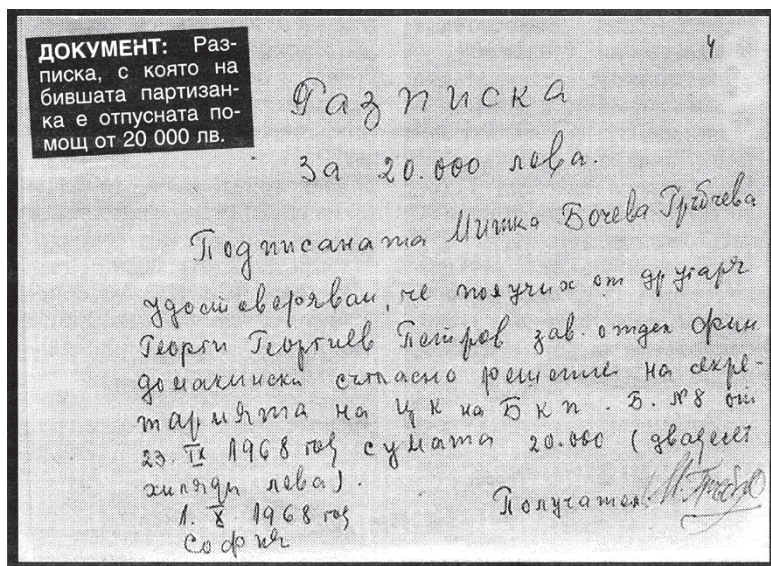 ДОКУМЕНТ: Раз-
писка, с която на
бившата партизан-
ка е отпусната по-
мощ от 20 000 лв.
4
Разписка
за 20.000 лева.
Подписаната Митка Бочева Гръбчева
удостоверявам, че получих от другаря
Георги Георгиев Петров зав. отдел фин.
домакински съгласно решение на секре-
тарията на ЦК на БКП. Б. №8 от
23. IX 1968 год сумата 20.000 (двадесет
хиляди лева).
1. X 1968 год
София
Получател: М. Гръбч